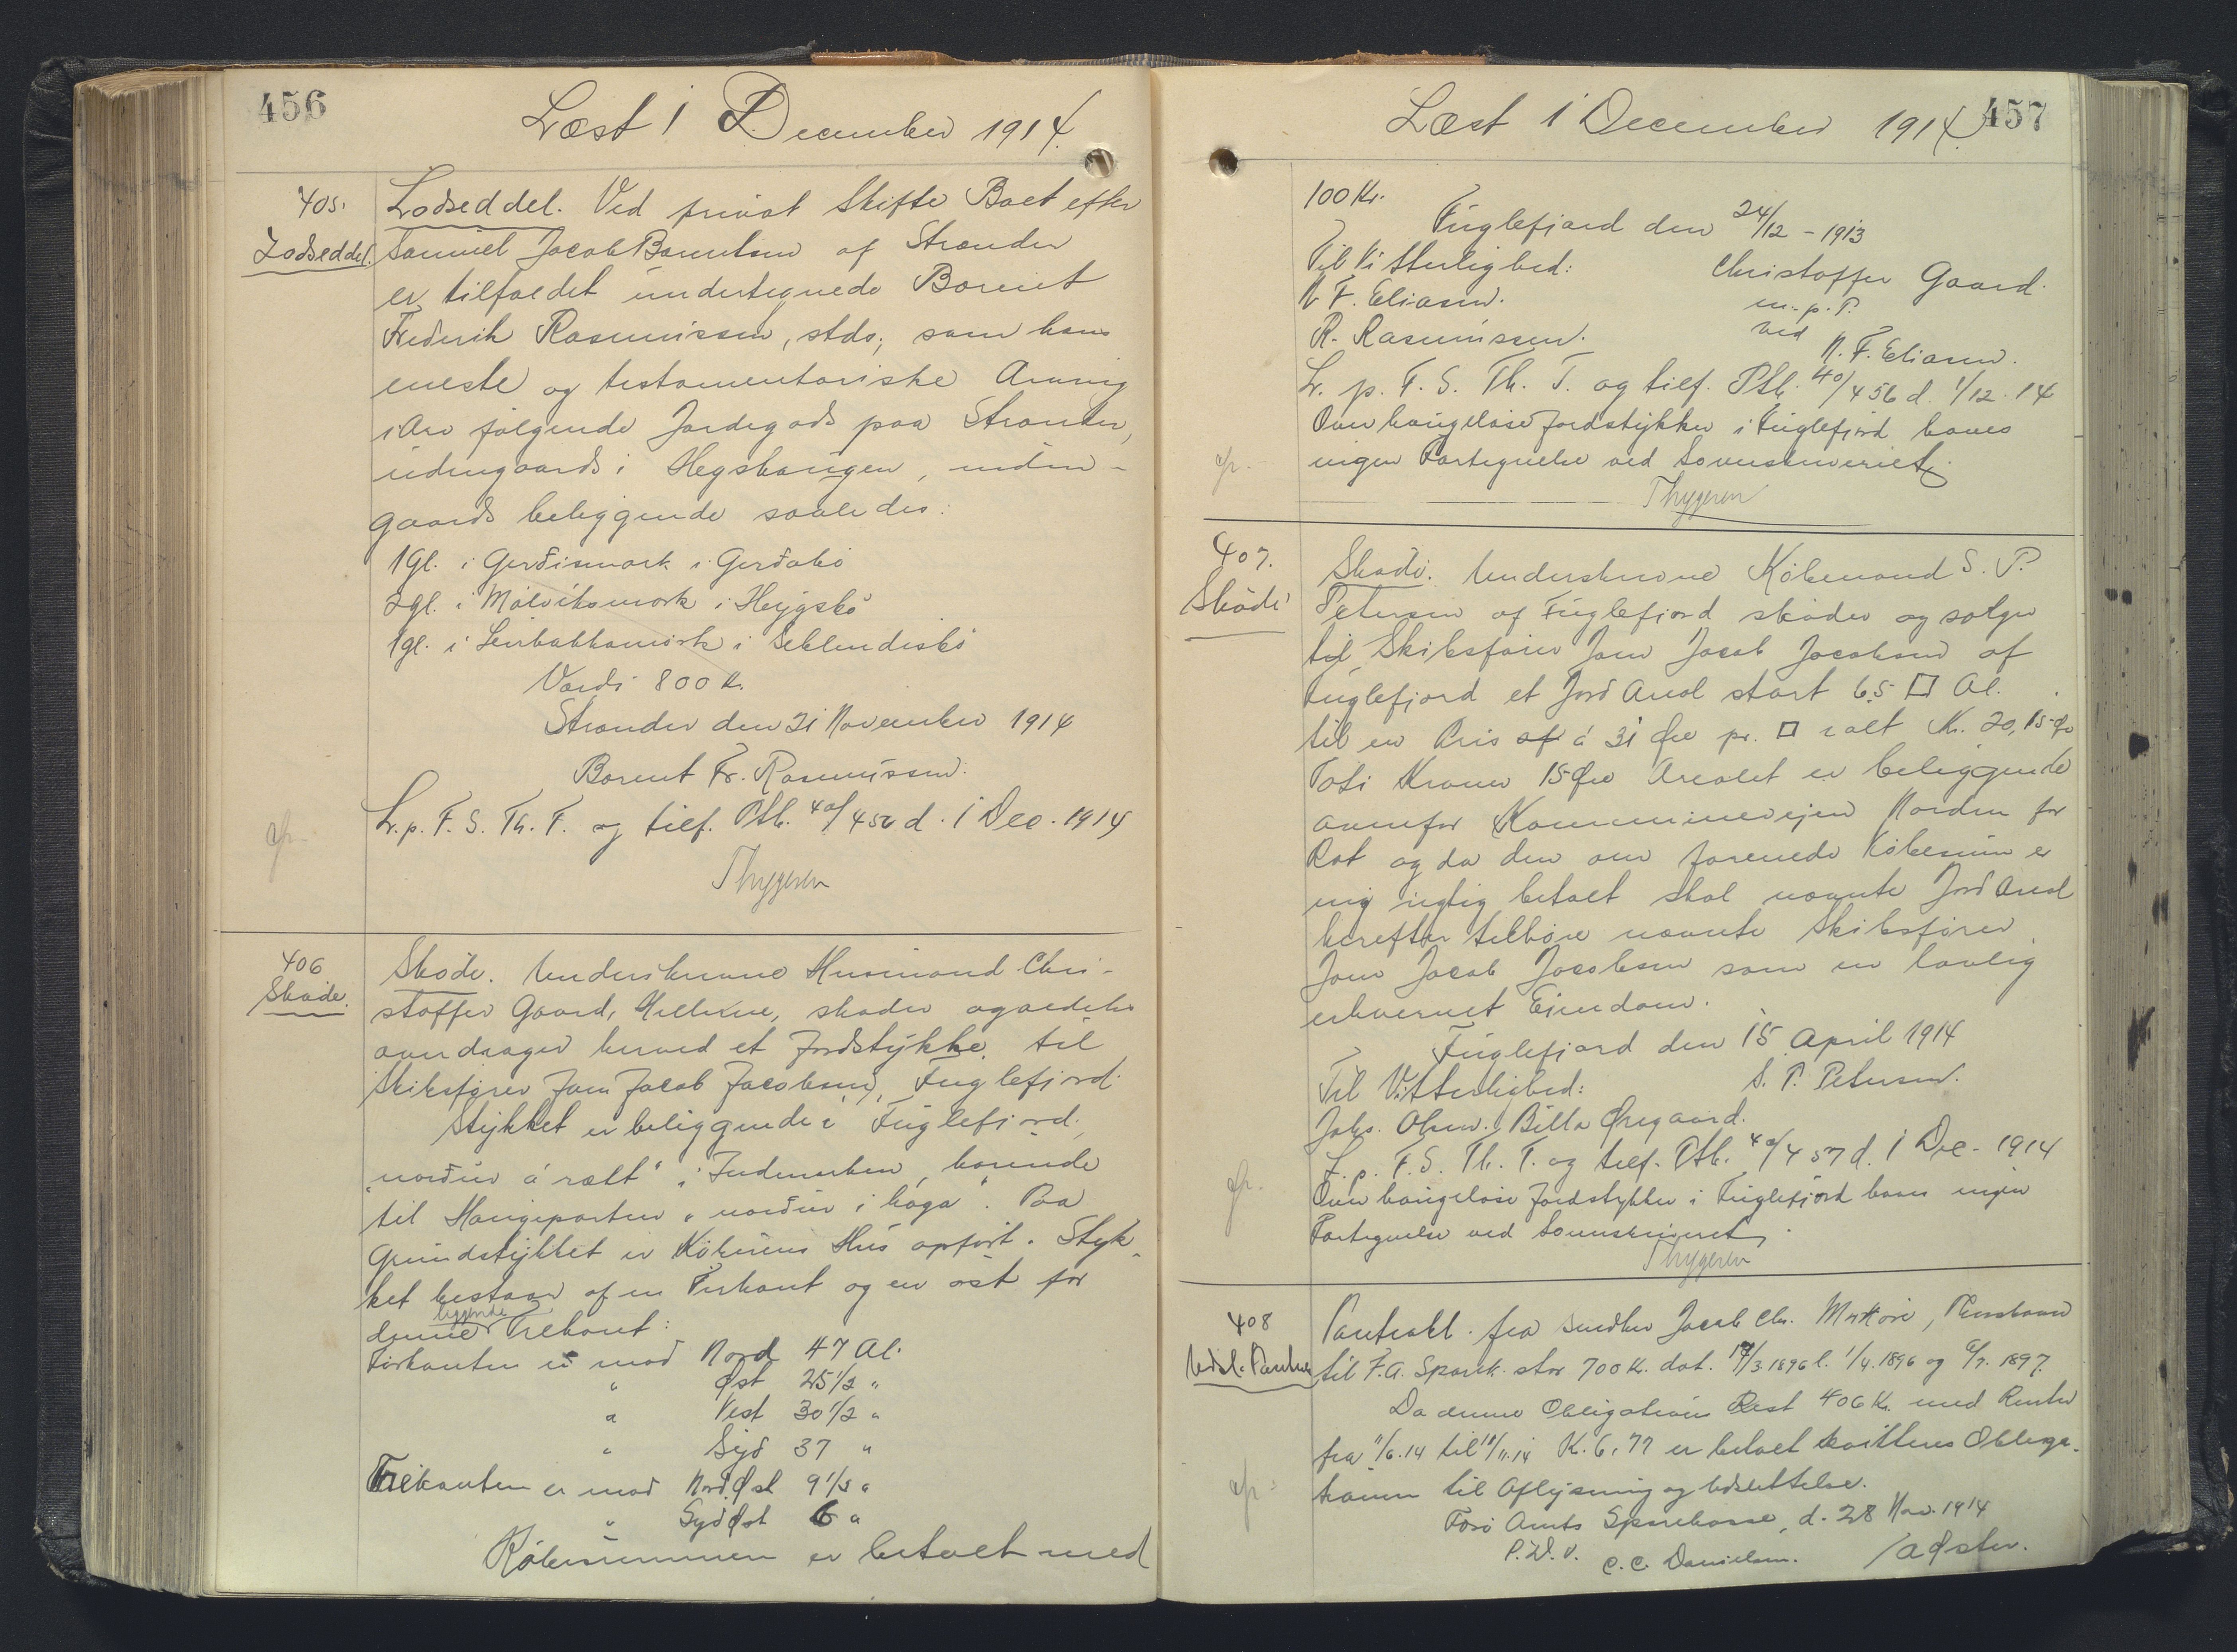 456
Læst 1 December 1914.
405.
Lodseddel.
Lodseddel. Ved privat Skifte Boet efter
Samuel Jacob Barentsen af Strænder
er tilfaldet undertegnede Barent
Frederik Rasmussen, stds, som hans
eneste og testamentariske Arving
i Arv følgende Jordegods paa Strænder,
udengaards i Hegshaugen, inden-
gaards beliggende saaledes:
1 Gl. i Gerdismørk i Gerdabø
2 gl. i Málvíksmørk i Heygsbø
1 gl. i Leirbakkamørk i
Værdi 800 Kr.
Strænder den 21 November 1914
Barent Fr. Rasmussen.
L. p. F. S. Th. T. og tilf. Ptb. 40/456 d. 1 Dec. 1914
Thygesen
406
Skøde.
Skøde. Underskrevne Husmand Chri-
stoffer Gaard, Hellerne, skøder og aldeles
overdrager herved et Jordstykke til
Skibsfører Joen Jacob Jacobsen, Fuglefjord.
Stykket er beliggende i Fuglefjord,
"norður á rætt" i Indmarken, hørende
til Haugeparten "norður i haga". Paa
Grundstykket er Køberens Hus opført. Styk-
ket bestaar af en Firkant og en øst for
denne liggende Trekant:
Firkanten er mod Nord 47 Al.
" Øst 25 1/2 "
" Vest 30 1/2 "
" Syd 37 "
Trekanten er mod Nord Øst 9 1/3 "
" Syd Øst 6 "
Købesummen er betalt med
457
Læst 1 December 1914.
100 Kr.
Fuglefjord den 24/12 - 1913
Til Vitterlighed: Christoffer Gaard.
N. F. Eliasen. m. p. P.
R. Rasmussen. ved
N. F. Eliasen.
L. p. F. S. Th. T. og tilf. Ptb. 40/456 d. 1/12. 14
Over haugeløse Jordstykker i Fuglefjord haves
ingen Fortegnelse ved Sorenskriveriet.
Thygesen
407.
Skøde
Skøde. Underskrevne Købmand S. P.
Petersen af Fuglefjord skøder og sælger
til Skibsfører Joen Jacob Jacobsen af
Fuglefjord et Jord Areal stort 65 □ Al.
til en Pris af á 31 Øre pr. □ ialt Kr. 20,15 Øre
Toti Kroner 15 Øre Arealet er beliggende
ovenfor Kommunevejen Norden for
Rot og da den ovenførende Købesum er
mig rigtig betalt skal nævnte Jord Areal
herefter tilhøre nævnte Skibsfører
Joen Jacob Jacobsen som en lovlig
erhvervet Ejendom.
Fuglefjord den 15 April 1914
Til Vitterlighed: S. P. Petersen.
Johs. Olsen. Billa Øregaard.
L. p. F. S. Th. T. og tilf. Ptb. 40/457 d. 1 Dec. 1914
Over haugeløse Jordstykker i Fuglefjord haves ingen
Fortegnelse ved Sorenskriveriet.
Thygesen
408
Udsl. Panteo
Panteobl. fra Snedker Jacob Chr. Mørkøre, Thorshavn
til F. A. Spark. stor 700 Kr. dat. 17/3 1896 l. 1/4 1896 og 1897.
Da denne Obligations Rest 406 Kr. med Renter
fra 11/6.14 til 18/11.14 Kr. 6,77 er betalt kvitteres Obliga-
tionen til Aflysning og Udslettelse.
Færø Amts Sparekasse, d. 28 Nov. 1914
P. D. V. C. C. Danielsen. / A Øster.